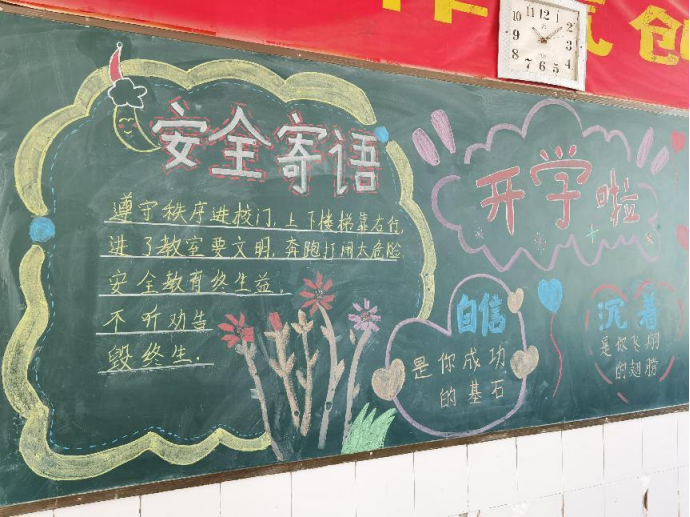 安全寄语
遵守秩序进校门，上下楼梯靠右行，
进了教室要文明，奔跑打闹大危险
安全教育终生益，
不听劝告
毁终生．
开学啦
自信
是你成功
的基石
沉着
是你飞翔
的翅膀
创
10 11 12 1 2 3 4 5 6 7 8 9